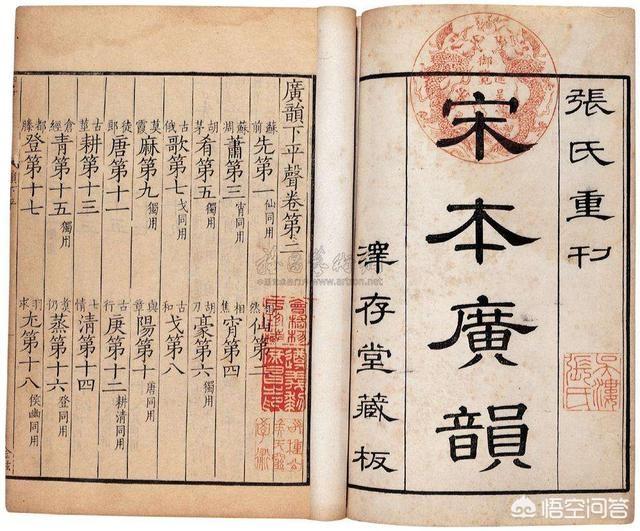 張氏重刊
宋本廣韻
澤存堂藏板
廣韻下平聲卷第二
蘇前先第一仙同用 然仙第二
蘇凋蕭第三宵同用 相焦宵第四
胡茅肴第五獨用 胡刀豪第六獨用
古俄歌第七戈同用 古和戈第八
莫霞麻第九獨用 與章陽第十唐同用
徒郎唐第十一 古行庚第十二耕清同用
古莖耕第十三 七情清第十四
倉經青第十五獨用 煮仍蒸第十六登同用
都滕登第十七 羽求尤第十八侯幽同用
www.artron.net
悟空问答